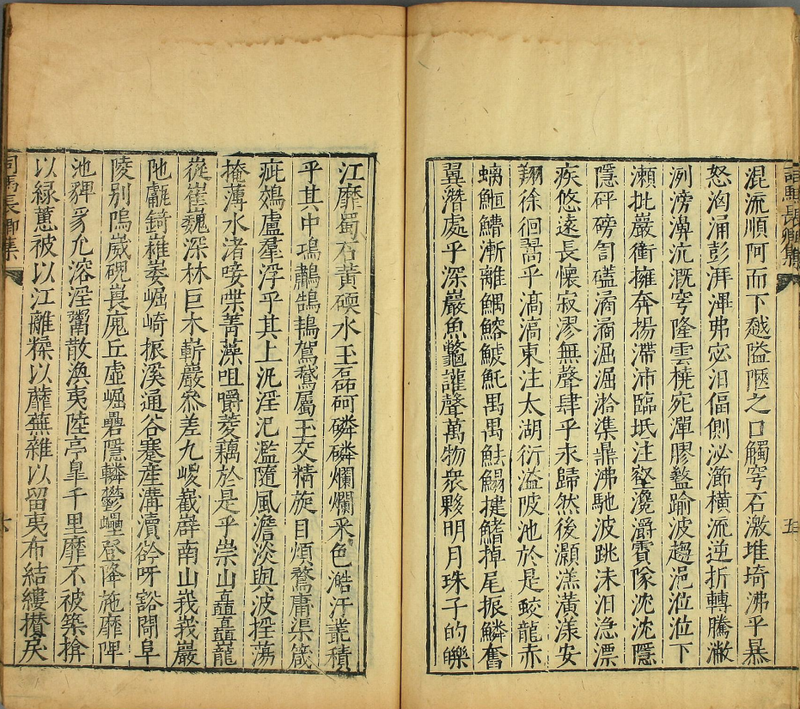 司馬長卿集
五
混流順阿而下赴隘陿之口觸穹石激堆埼沸乎暴
怒洶涌彭湃滭弗宓汨偪側泌㴉橫流逆折轉騰潎
洌滂濞沆溉穹隆雲橈宛潬膠盭踰波趨浥涖涖下
瀨批巖衝擁奔揚滯沛臨坻注壑瀺灂霣隊沈沈隱
隱砰磅訇礚潏潏淈淈湁潗鼎沸馳波跳沫汨㴔漂
疾悠遠長懷寂漻無聲肆乎永歸然後灝溔潢漾安
翔徐徊翯乎滈滈東注太湖衍溢陂池於是蛟龍赤
螭䱭䲛漸離鰅鰫鰬魠禺禺魼鰨揵鰭掉尾振鱗奮
翼潛處乎深巖魚鼈讙聲萬物衆夥明月珠子的皪
江靡蜀石黃碝水玉磊砢磷磷爛爛采色澔汗藂積
乎其中鴻鷫鵠鴇鴐鵞屬玉交精旋目煩鶩庸渠箴
疵鵁盧羣浮乎其上汎淫汜濫隨風澹淡與波搖蕩
掩薄水渚唼喋菁藻咀嚼菱藕於是乎崇山矗矗龍
嵸崔巍深林巨木嶄巖參差九嵕嶻嶭南山峩峩巖
陁甗錡嶊崣崛崎振溪通谷蹇產溝瀆谽呀豁閜阜
陵別隝崴磈㟪廆丘虛崛礨隱轔鬱㠥登降施靡陂
池貏豸沇溶淫鬻散渙夷陸亭皐千里靡不被築揜
以緑蕙被以江離糅以蘼蕪雜以留夷布結縷攅戾
司馬長卿集